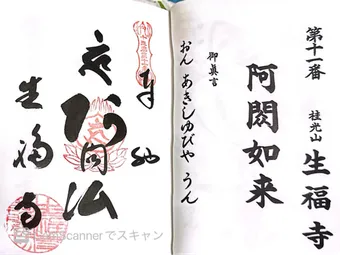 第十一番
桂光山
生福寺
阿閦如来
御眞言
おん あきしゆびや うん
奉
生福寺
scannerでスキャン